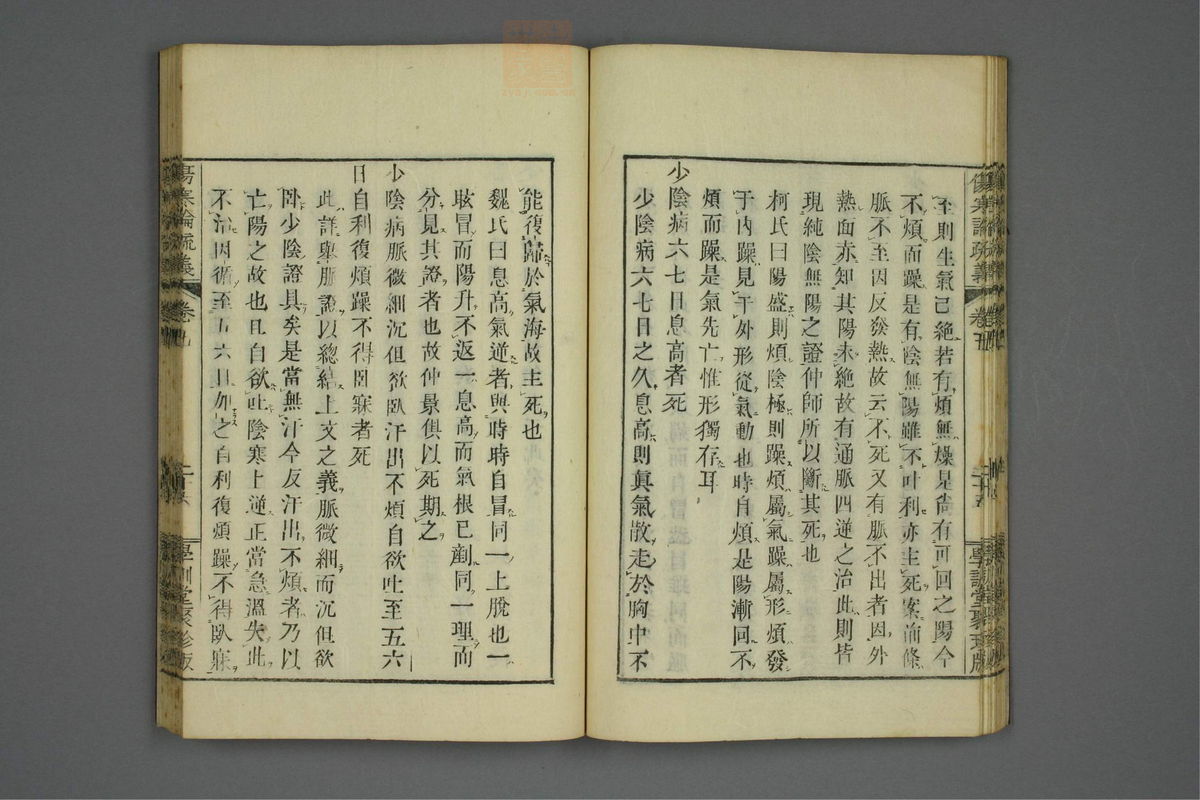 至則生氣已絶若有煩無燥是尙有可回之陽今
不煩而躁是有陰無陽雖不吐利亦主死案前條
脈不至因反發熱故云不死又有脈不出者因外
熱面赤知其陽未絶故有通脈四逆之治此則皆
現純陰無陽之證仲師所以斷其死也
柯氏曰陽盛則煩陰極則躁煩屬氣躁屬形煩發
于內躁見于外形從氣動也時自煩是陽漸回不
煩而躁是氣先亡惟形獨存耳
少陰病六七日息高者死
少陰病六七日之久息高則眞氣散走於胸中不
傷寒論疏義
卷五
二十五
學訓堂聚珍版
能復歸於氣海故主死也
魏氏曰息高氣逆者與時時自冒同一上脫也一
眩冒而陽升不返一息高而氣根已剷同一理而
分見其證者也故仲景俱以死期之
少陰病脈微細沉但欲臥汗出不煩自欲吐至五六
日自利復煩躁不得臥寐者死
此詳舉脈證以總結上文之義脈微細而沉但欲
臥少陰證具矣是當無汗今反汗出不煩者乃以
亡陽之故也且自欲吐陰寒上逆正當急溫失此
不治因循至五六日加之自利復煩躁不得臥寐
傷寒論疏義
學訓堂聚珍版